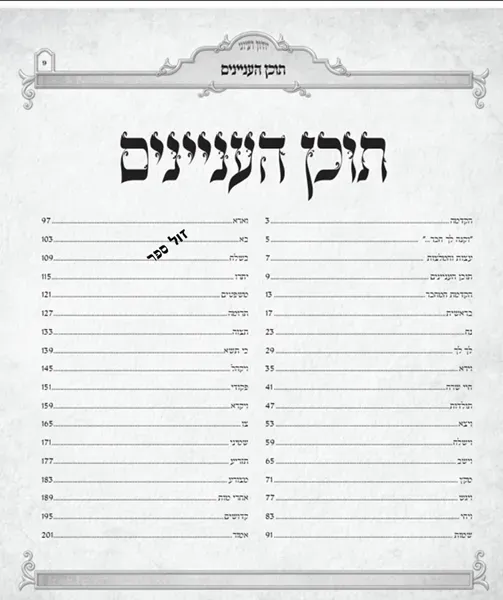 תוכן העניינים
9
תוכן העניינים
הקדמה 3
"וקנה לך חבר.." 5
עצות והמלצות 7
תוכן העניינים 9
הקדמת המחבר 13
בראשית 17
נח 23
לך לך 29
וירא 35
חיי שרה 41
תולדות 47
ויצא 53
וישלח 59
וישב 65
מקץ 71
ויגש 77
ויחי 83
שמות 91
וארא 97
בא 103
בשלח 109
יתרו 115
משפטים 121
תרומה 127
תצוה 133
כי תשא 139
ויקהל 145
פקודי 151
ויקרא 159
צו 165
שמיני 171
תזריע 177
מצורע 183
אחרי מות 189
קדושים 195
אמור 201
זול ספר